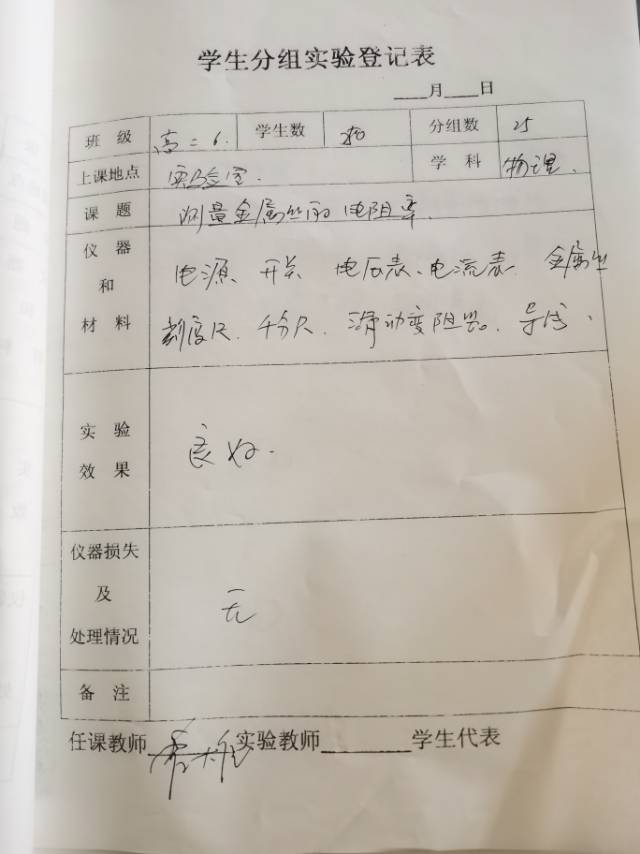 学生分组实验登记表
___月___日
班 级 高二6. 学生数 分组数 25
上课地点 实验室. 学 科 物理.
课 题 测量金属丝的电阻率.
仪 器
和
材 料
电源、开关 电压表、电流表 金属丝
刻度尺、千分尺、滑动变阻器、导线、
实 验
效 果
良好.
仪器损失
及
处理情况
无
备 注
任课教师 实验教师________学生代表